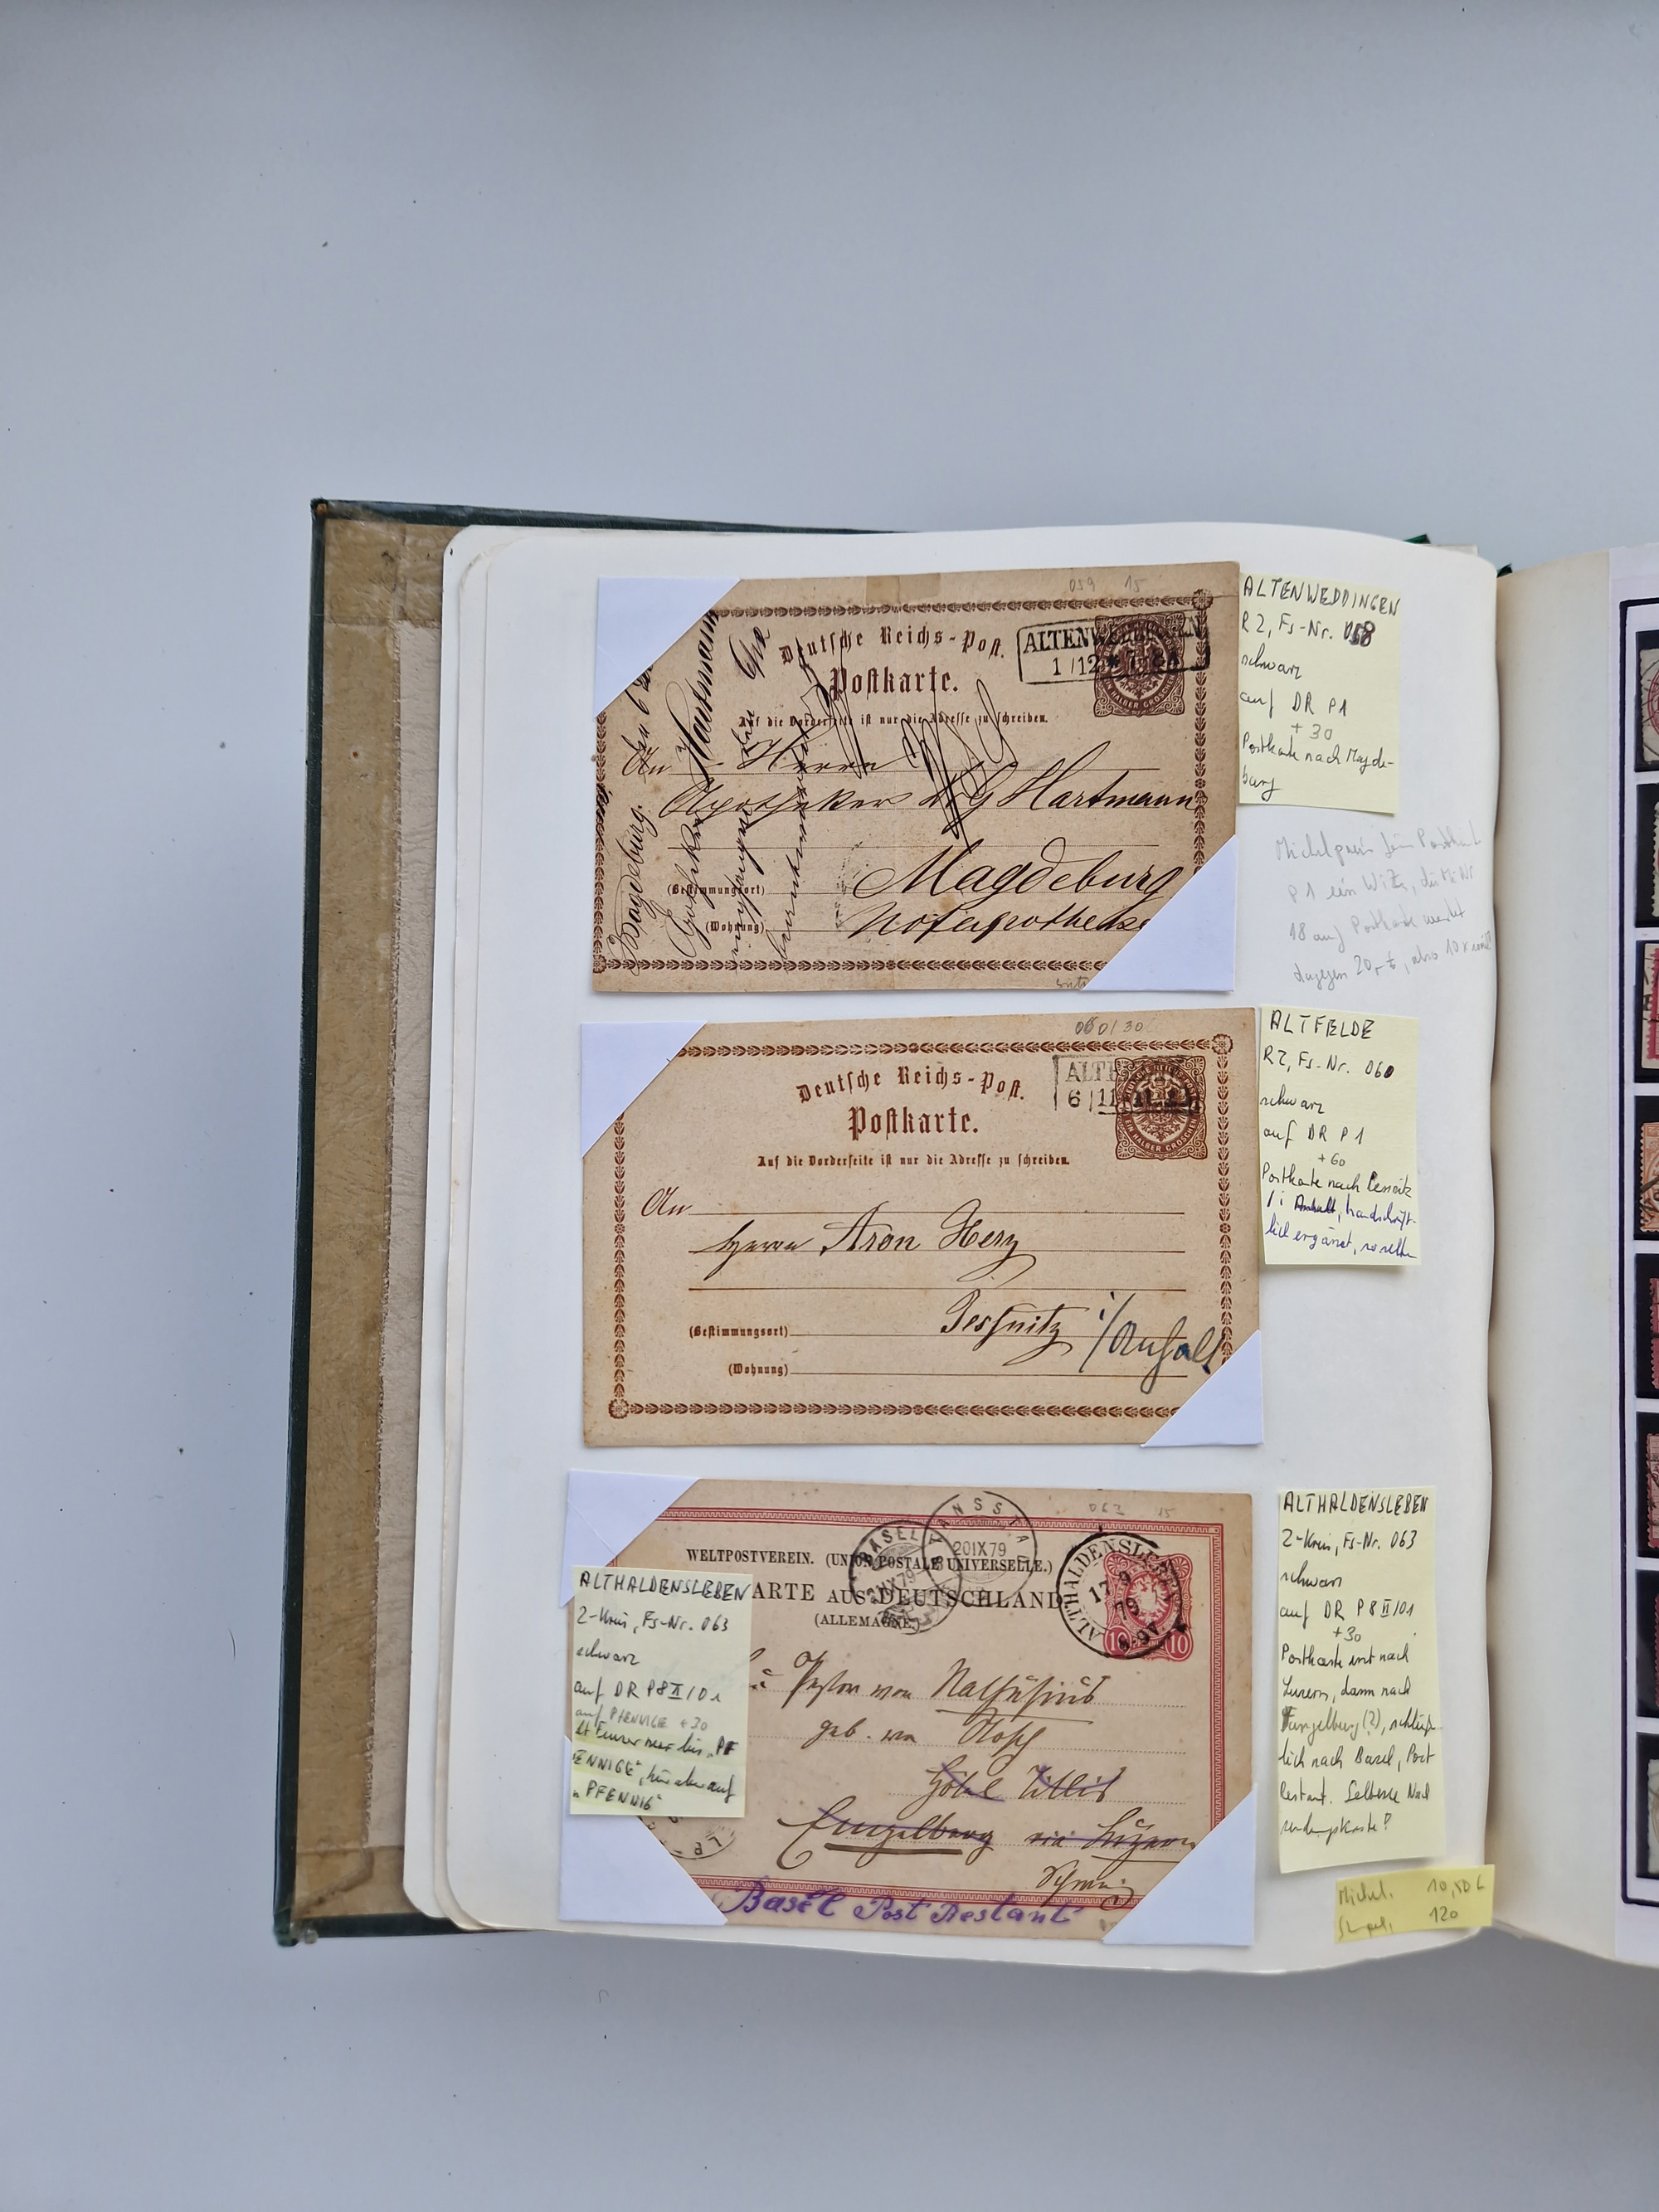 059 15
Deutsche Reichs-Post.
Postkarte.
ALTENWEDDINGEN
1/12
EIN HALBER GROSCHEN
Auf die Vorderseite ist nur die Adresse zu schreiben.
An Herrn
Apotheker Hartmann
(Bestimmungsort) Magdeburg
(Wohnung) Hofapotheke
Magdeburg.
Hartmann
ALTENWEDDINGEN
R2, Fs-Nr. 058
schwarz
auf DR P1
+30
Postkarte nach Magde-
burg
Michelpreis für Postkarte
P1 ein Witz, die Mi Nr
18 auf Postkarte
dagegen 20,- €, also 10x
060/30
Deutsche Reichs-Post.
Postkarte.
ALTF
6/11
EIN HALBER GROSCHEN
Auf die Vorderseite ist nur die Adresse zu schreiben.
An
Herrn Aron Herz
(Bestimmungsort) Jessnitz i/Anhalt
(Wohnung)
ALTFELDE
R2, Fs-Nr. 060
schwarz
auf DR P1
+60
Postkarte nach Jessnitz
/i Anhalt, handschrift-
lich ergänzt, so selten
063 15
WELTPOSTVEREIN. (UNION POSTALE UNIVERSELLE.)
ARTE AUS DEUTSCHLAND
(ALLEMAGNE.)
BASEL
IX79
20IX79
ALTHALDENSLEBEN
17 9
79
10 10
Pastor von Nathusius
geb. von
Hôtel Titlis
Engelberg via Luzern
Schweiz
Basel Post Restant
ALTHALDENSLEBEN
2-Kreis, Fs-Nr. 063
schwarz
auf DR P8II/01
auf PFENNIGE +30
"PF
ENNIGE", hier aber auf
"PFENNIG"
ALTHALDENSLEBEN
2-Kreis, Fs-Nr. 063
schwarz
auf DR P8II/01
+30
Postkarte erst nach
Luzern, dann nach
(?), schließ-
lich nach Basel, Post
Restant. Seltene Nach
sendungskarte!
Michel. 10,50 €
Stempel, 120